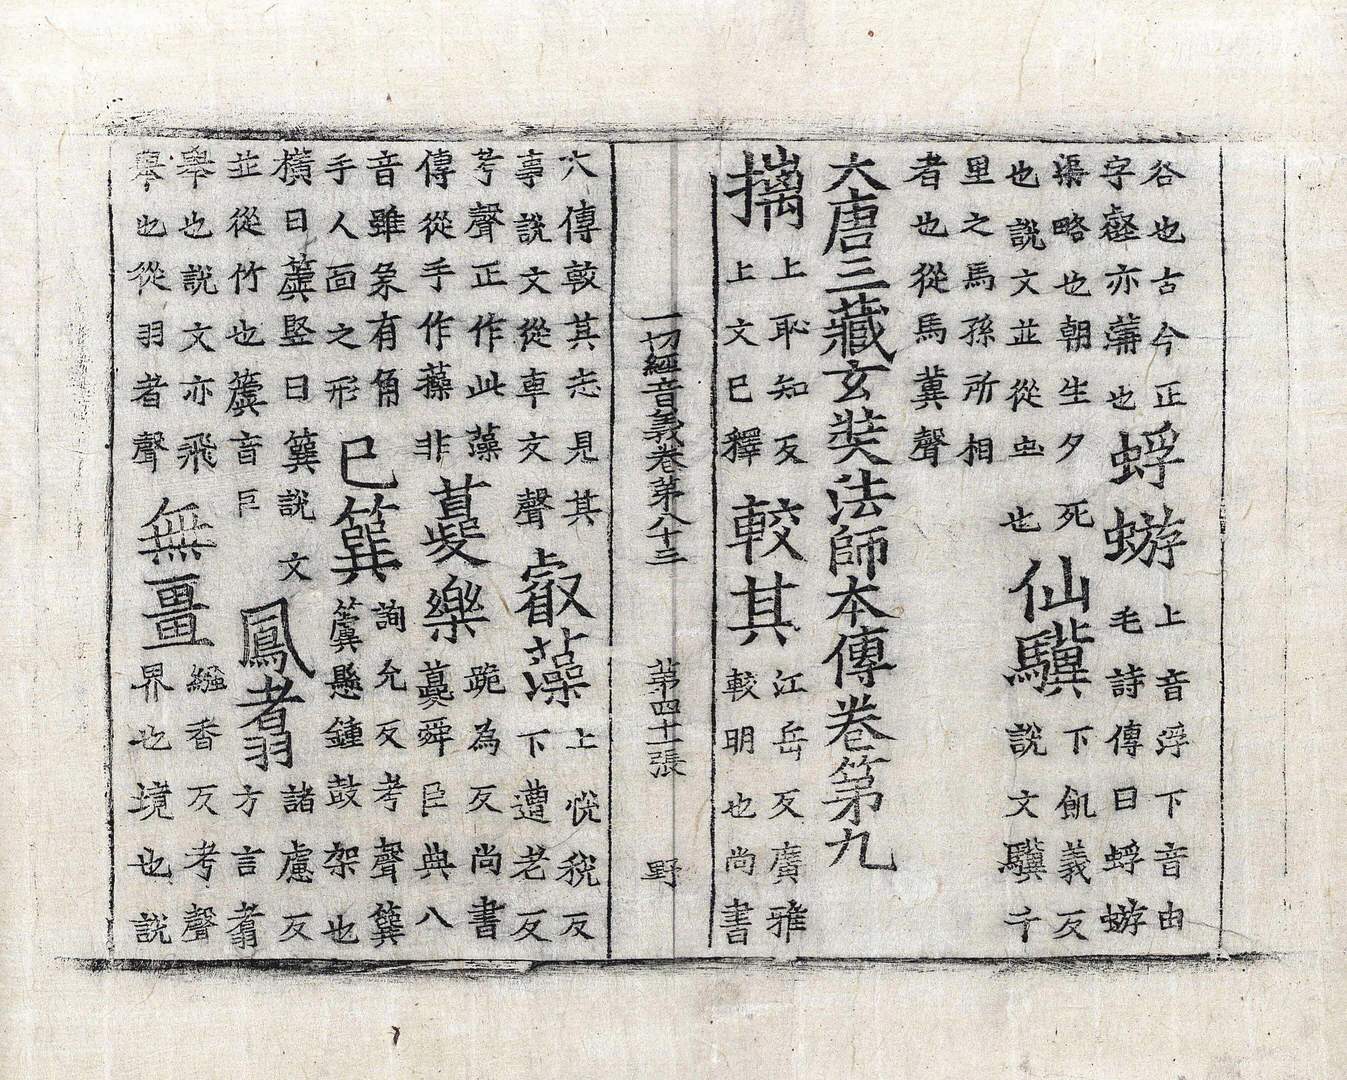 谷也古今正字壑亦壑也蜉蝣上音浮下音由毛詩傳曰蜉蝣
渠略也朝生夕死也說文並從虫也仙驥下飢義反說文驥千
里之馬孫所相者也從馬冀聲
大唐三藏玄奘法師本傳卷第九
摛上恥知反上文已釋較其江岳反廣雅較明也尚書
一切經音義卷第八十三 第四十一張 野
大傳較其志見其事說文從車文聲叡藻上悅稅反下遭老反
考聲正作此藻傳從手作藻非蘷樂跪為反尚書蘷舜臣典八
音雖象有角手人面之形已簨詢允反考聲簨簴懸鍾鼓架也
橫曰簴豎曰簨說文並從竹也簴音巨鳳翥諸慮反方言翥
舉也說文亦飛舉也從羽者聲無畺繈香反考聲界也境也說